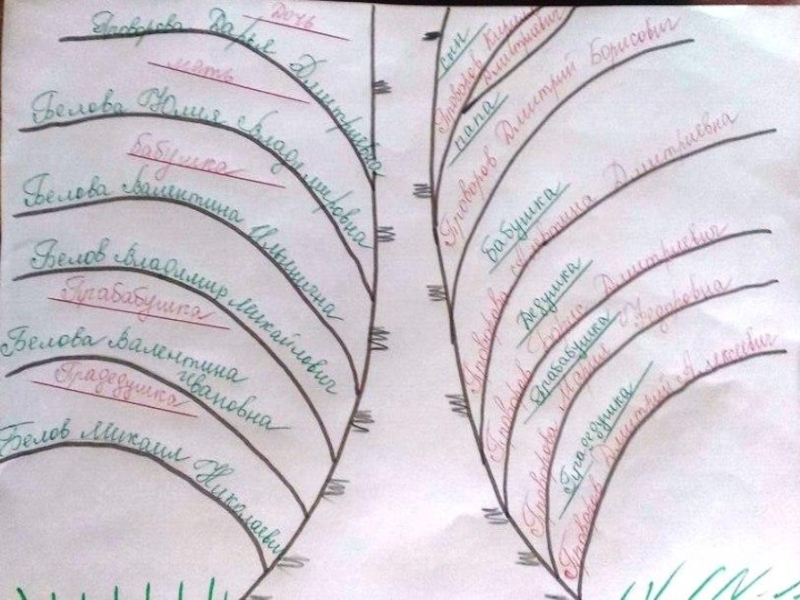 Дочь
Проворова Дарья Дмитриевна
мать
Белова Юлия Владимировна
Бабушка
Белова Валентина Ильинична
Белов Владимир Михайлович
Прабабушка
Белова Валентина
Ивановна
Прадедушка
Белов Михаил Николаевич
сын
Проворов Кирилл
Дмитриевич
папа
Проворов Дмитрий Борисович
Бабушка
Проворова Дмитриевна
Дедушка
Проворов Борис Дмитриевич
Прабабушка
Проворова Мария Федоровна
Прадедушка
Проворов Дмитрий Алексеевич